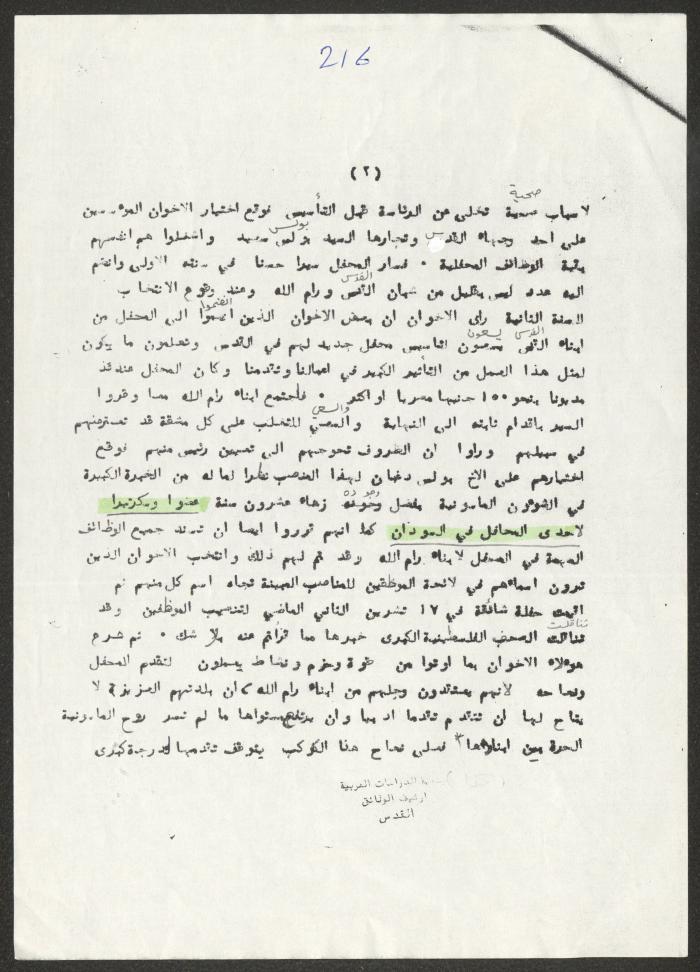 216
(٢)
صحية
لاسباب صحية تخلى عن الرئاسة قبل التأسيس فوقع اختيار الاخوان المؤسسين
بولس
على احد وجهاء القدس وتجارها السيد بولس سعيد واشغلوا هم انفسهم
بقية الوظائف المحفلية ٠ فسار المحفل سيرا حسنا في سنته الاولى وانضم
القدس
اليه عدد ليس بقليل من شبان القدس ورام الله وعند وقوع الانتخاب
انضموا
للسنة الثانية رأى الاخوان ان بعض الاخوان الذين انضموا الى المحفل من
القدس يسعون
ابناء القدس يسعون لتأسيس محفل جديد لهم في القدس وتعلمون ما يكون
لمثل هذا العمل من التأثير الكبير في اعمالنا وتقدمنا وكان المحفل عندئذ
مديونا بنحو ١٥٠ جنيها مصريا او اكثر ٠ فاجتمع ابناء رام الله معا وقرروا
والسعي
السير باقدام ثابتة الى النهاية والسعي للتغلب على كل مشقة قد تعترضهم
في سبيلهم وراوا ان الظروف تحوجهم الى تعيين رئيس منهم فوقع
اختيارهم على الاخ بولس دخان لهذا المنصب نظرا لما له من الخبرة الكبيرة
وجوده
في الشؤون الماسونية بفضل وجوده زهاء عشرون سنة عضوا وسكرتيرا
لاحدى المحافل في السودان كما انهم قرروا ايضا ان تسند جميع الوظائف
المهمة في المحفل لابناء رام الله وقد تم لهم ذلك وانتخب الاخوان الذين
ترون اسماءهم في لائحة الموظفين للمناصب المبينة تجاه اسم كل منهم ثم
اقيمت حفلة شائقة في ١٧ تشرين الثاني الماضي لتنصيب الموظفين وقد
تناقلت
تناقلت الصحف الفلسطينية الكبرى خبرها مما قرأتم عنه بلا شك ٠ ثم شرع
هؤلاء الاخوان بما اوتوا من قوة وحزم ونشاط يعملون لتقدم المحفل
ونجاحه لانهم يعتقدون وجلهم من ابناء رام الله ، ان بلدتهم العزيزة لا
يتاح لها ان تتقدم تقدما ادبيا وان مستواها ما لم تسر روح الماسونية
الحرة بين ابناءها فعلى نجاح هذا الكوكب يتوقف تقدمها لدرجة كبرى
الدراسات العربية
ارشيف الوثائق
القدس